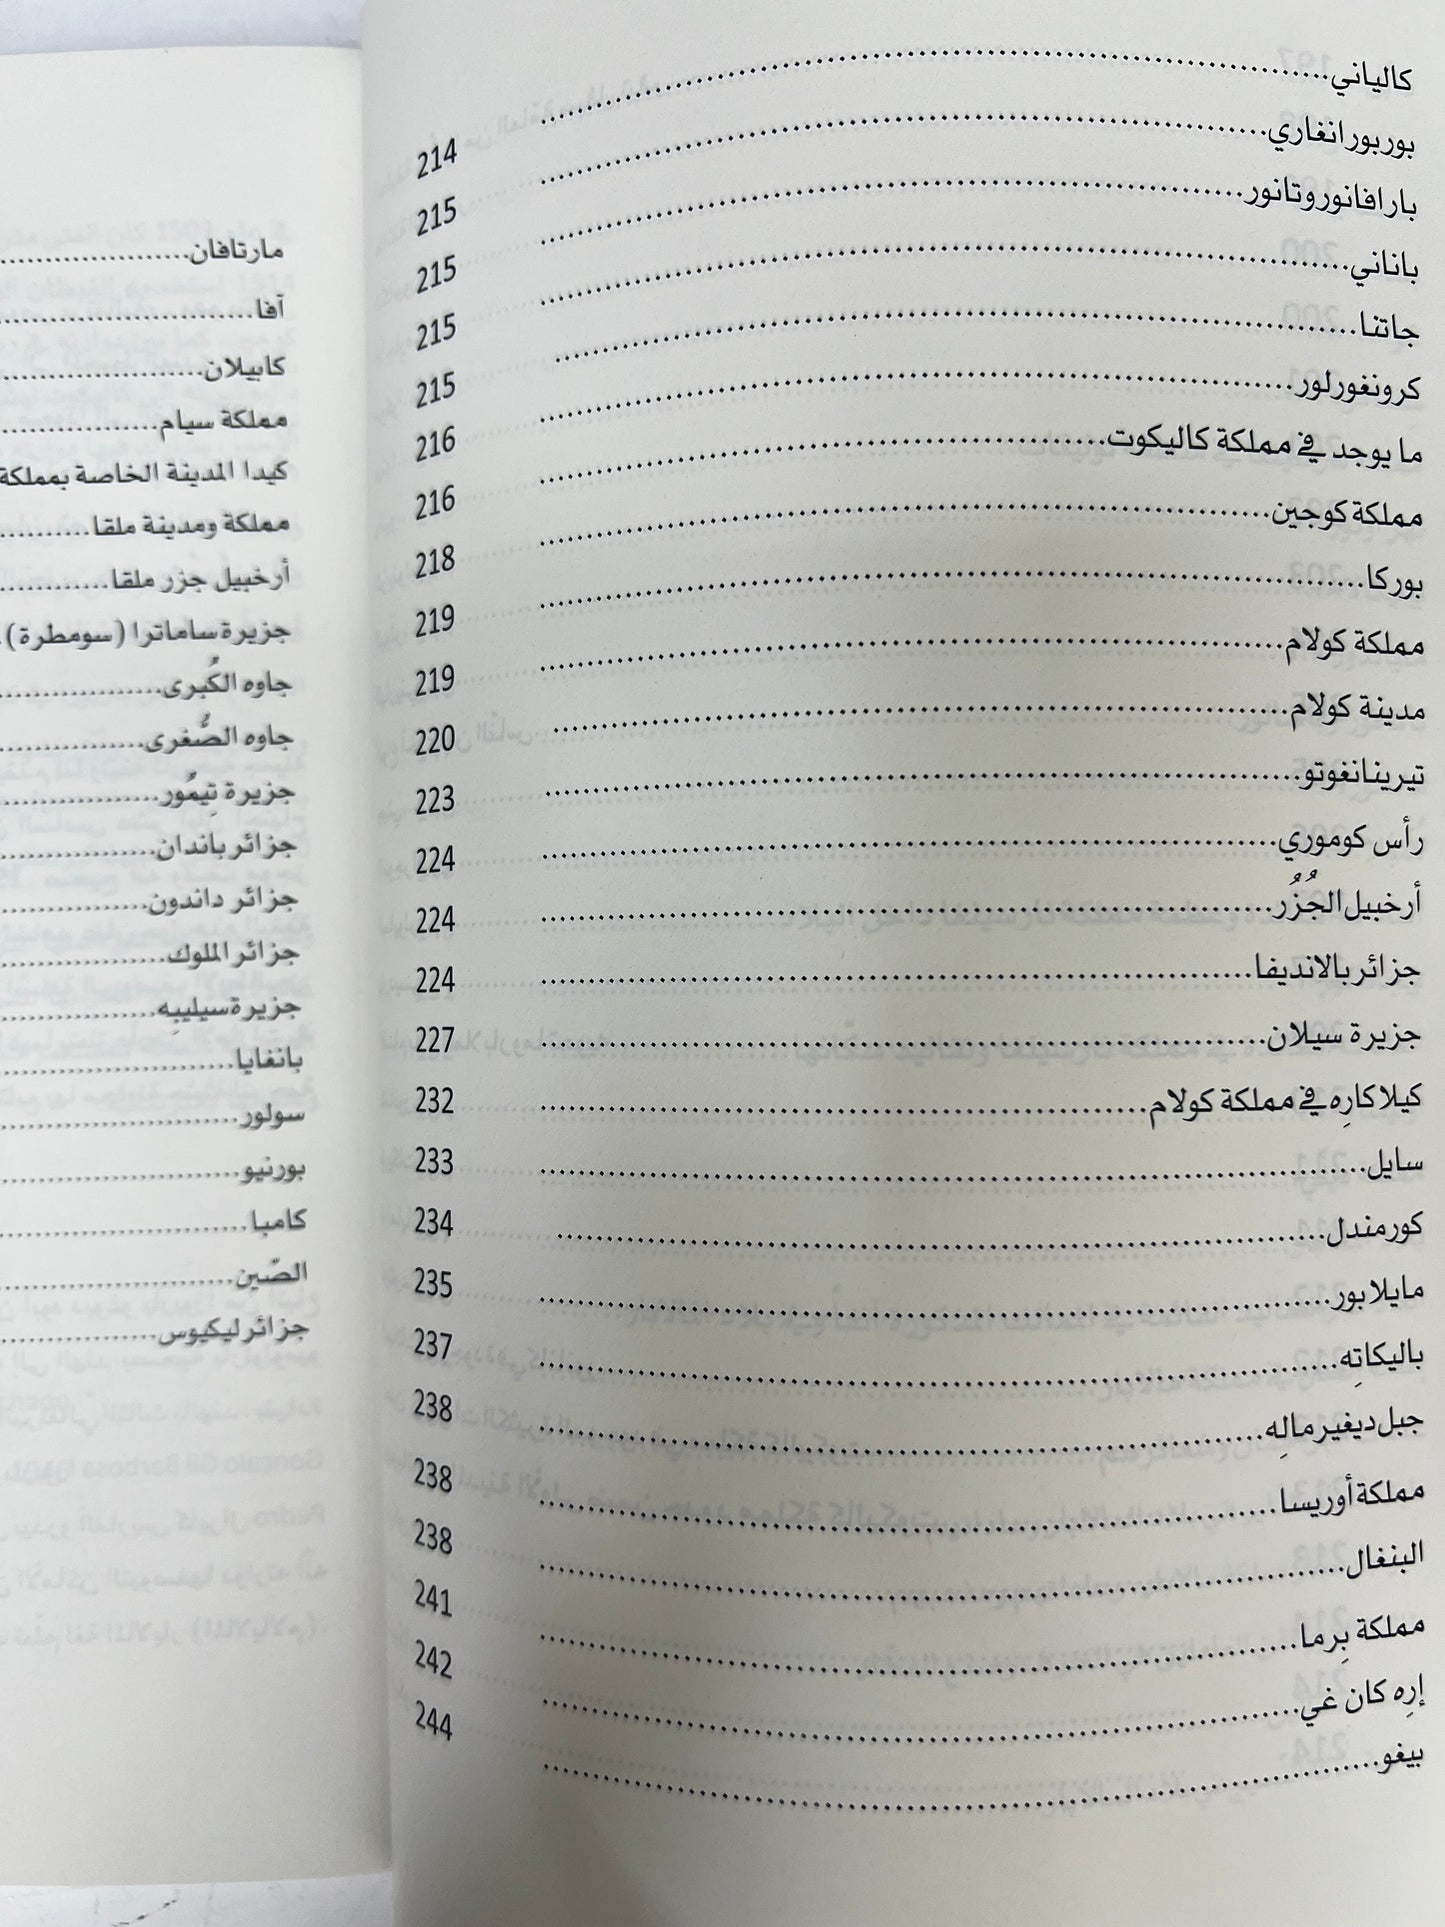 كالياني........214
بوربورانغاري........215
بارافانوروتانور........215
باناني........215
جاتنا........215
كرونغورلور........216
ما يوجد في مملكة كاليكوت........216
مملكة كوجين........218
بوركا........219
مملكة كولام........219
مدينة كولام........220
تيرينانغوتو........223
رأس كوموري........224
أرخبيل الجُزُر........224
جزائر بالانديفا........224
جزيرة سيلان........227
كيلاكارِه في مملكة كولام........232
سايل........233
كورمندل........234
مايلابور........235
باليكاتِه........237
جبل ديغيرمالِه........238
مملكة أوريسا........238
البنغال........238
مملكة بِرما........241
إرِه كان غي........242
بيغو........244
مارتافان........
آفا........
كابيلان........
مملكة سيام........
كيدا المدينة الخاصة بمملكة
مملكة ومدينة ملقا........
أرخبيل جزر ملقا........
جزيرة ساماترا (سومطرة).
جاوه الكُبرى........
جاوه الصُّغرى........
جزيرة تِيمُور........
جزائر باندان........
جزائر داندون........
جزائر الملوك........
جزيرة سيليبِه........
بانغايا........
سولور........
بورنيو........
كامبا........
الصّين........
جزائر ليكيوس........